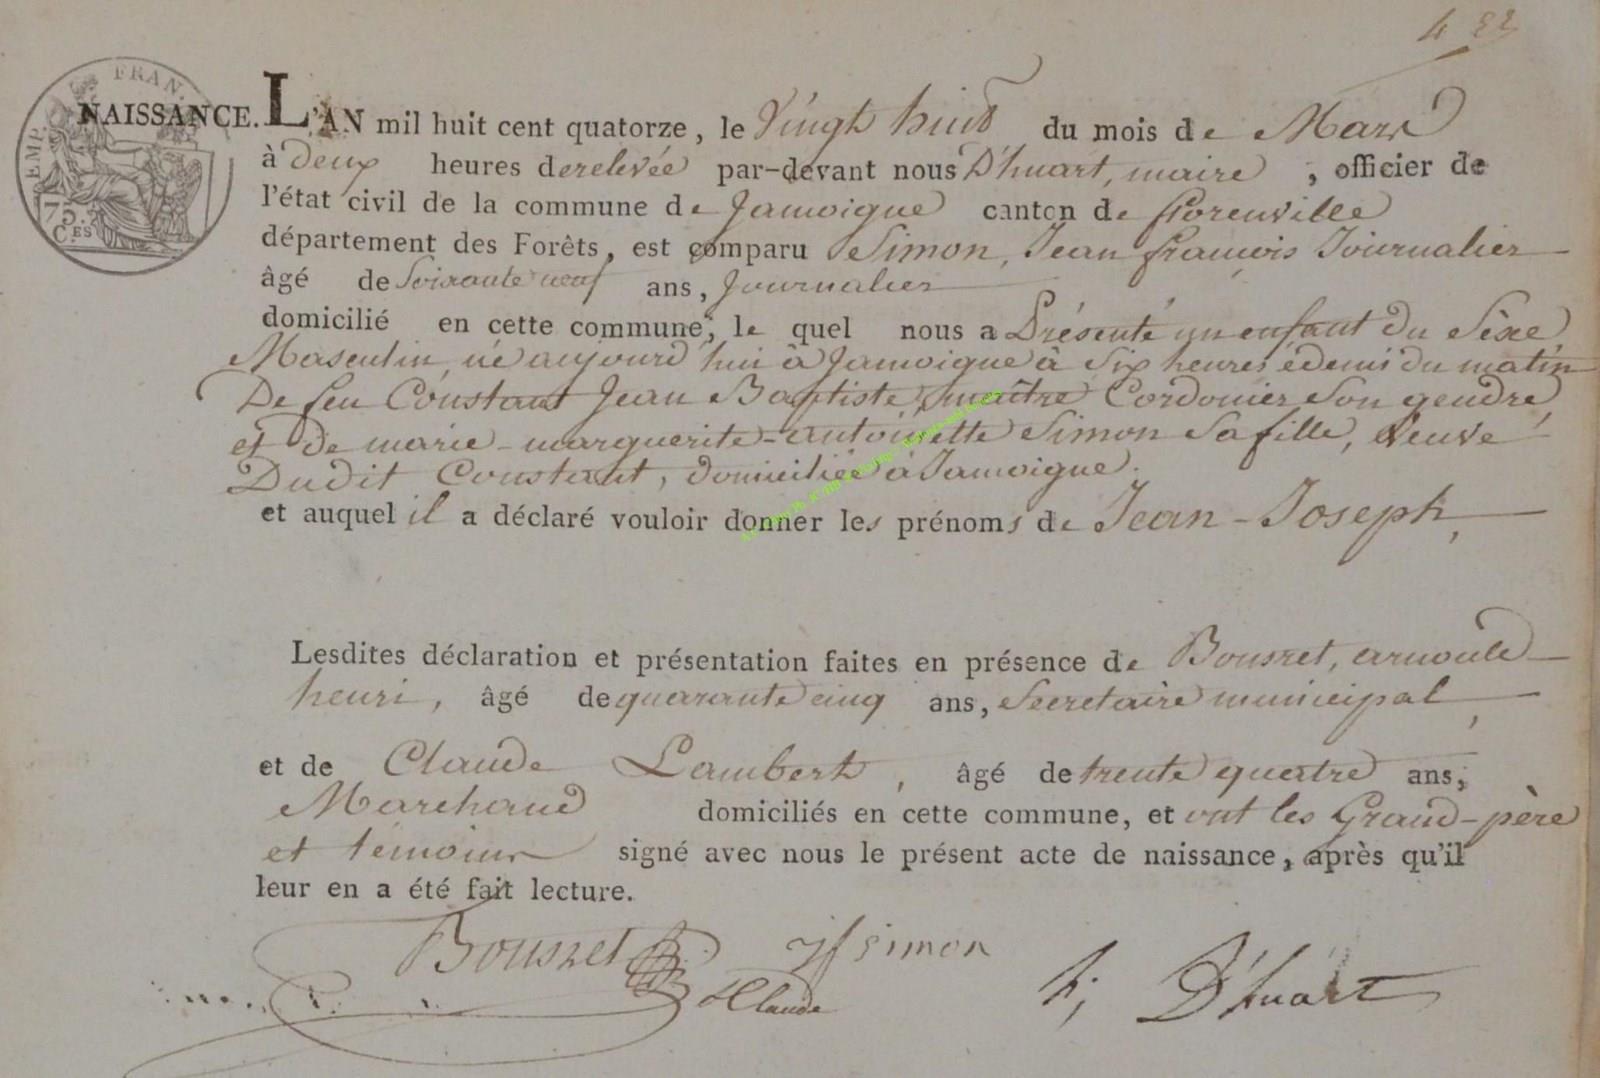 4 82
EMP. FRAN.
75. C.ES
NAISSANCE. L'AN mil huit cent quatorze, le Vingt huit du mois de Mars
à deux heures de relevée par-devant nous D'huart, maire, officier de
l'état civil de la commune de Jamoigne canton de florenville
département des Forêts, est comparu Simon, Jean françois Journalier
âgé de Soixante neuf ans, Journalier
domicilié en cette commune, le quel nous a Présenté un enfant du Sèxe
Masculin, né aujourd'hui à Jamoigne à Six heures édemi du matin
De feu Constant Jean Baptiste, maître Cordonier Son gendre,
et de marie-marguerite-antoinette Simon Sa fille, Veuve
Dudit Constant, domiciliée à Jamoigne.
et auquel il a déclaré vouloir donner les prénoms de Jean-Joseph,
Lesdites déclaration et présentation faites en présence de Bousret, arnould
henri, âgé de quarante cinq ans, Secretaire municipal,
et de Claude Lambert, âgé de trente quatre ans,
Marchand domiciliés en cette commune, et ont les Grand-père
et témoins signé avec nous le présent acte de naissance, après qu'il
leur en a été fait lecture.
Bousret jf simon
Claude h; D'huart